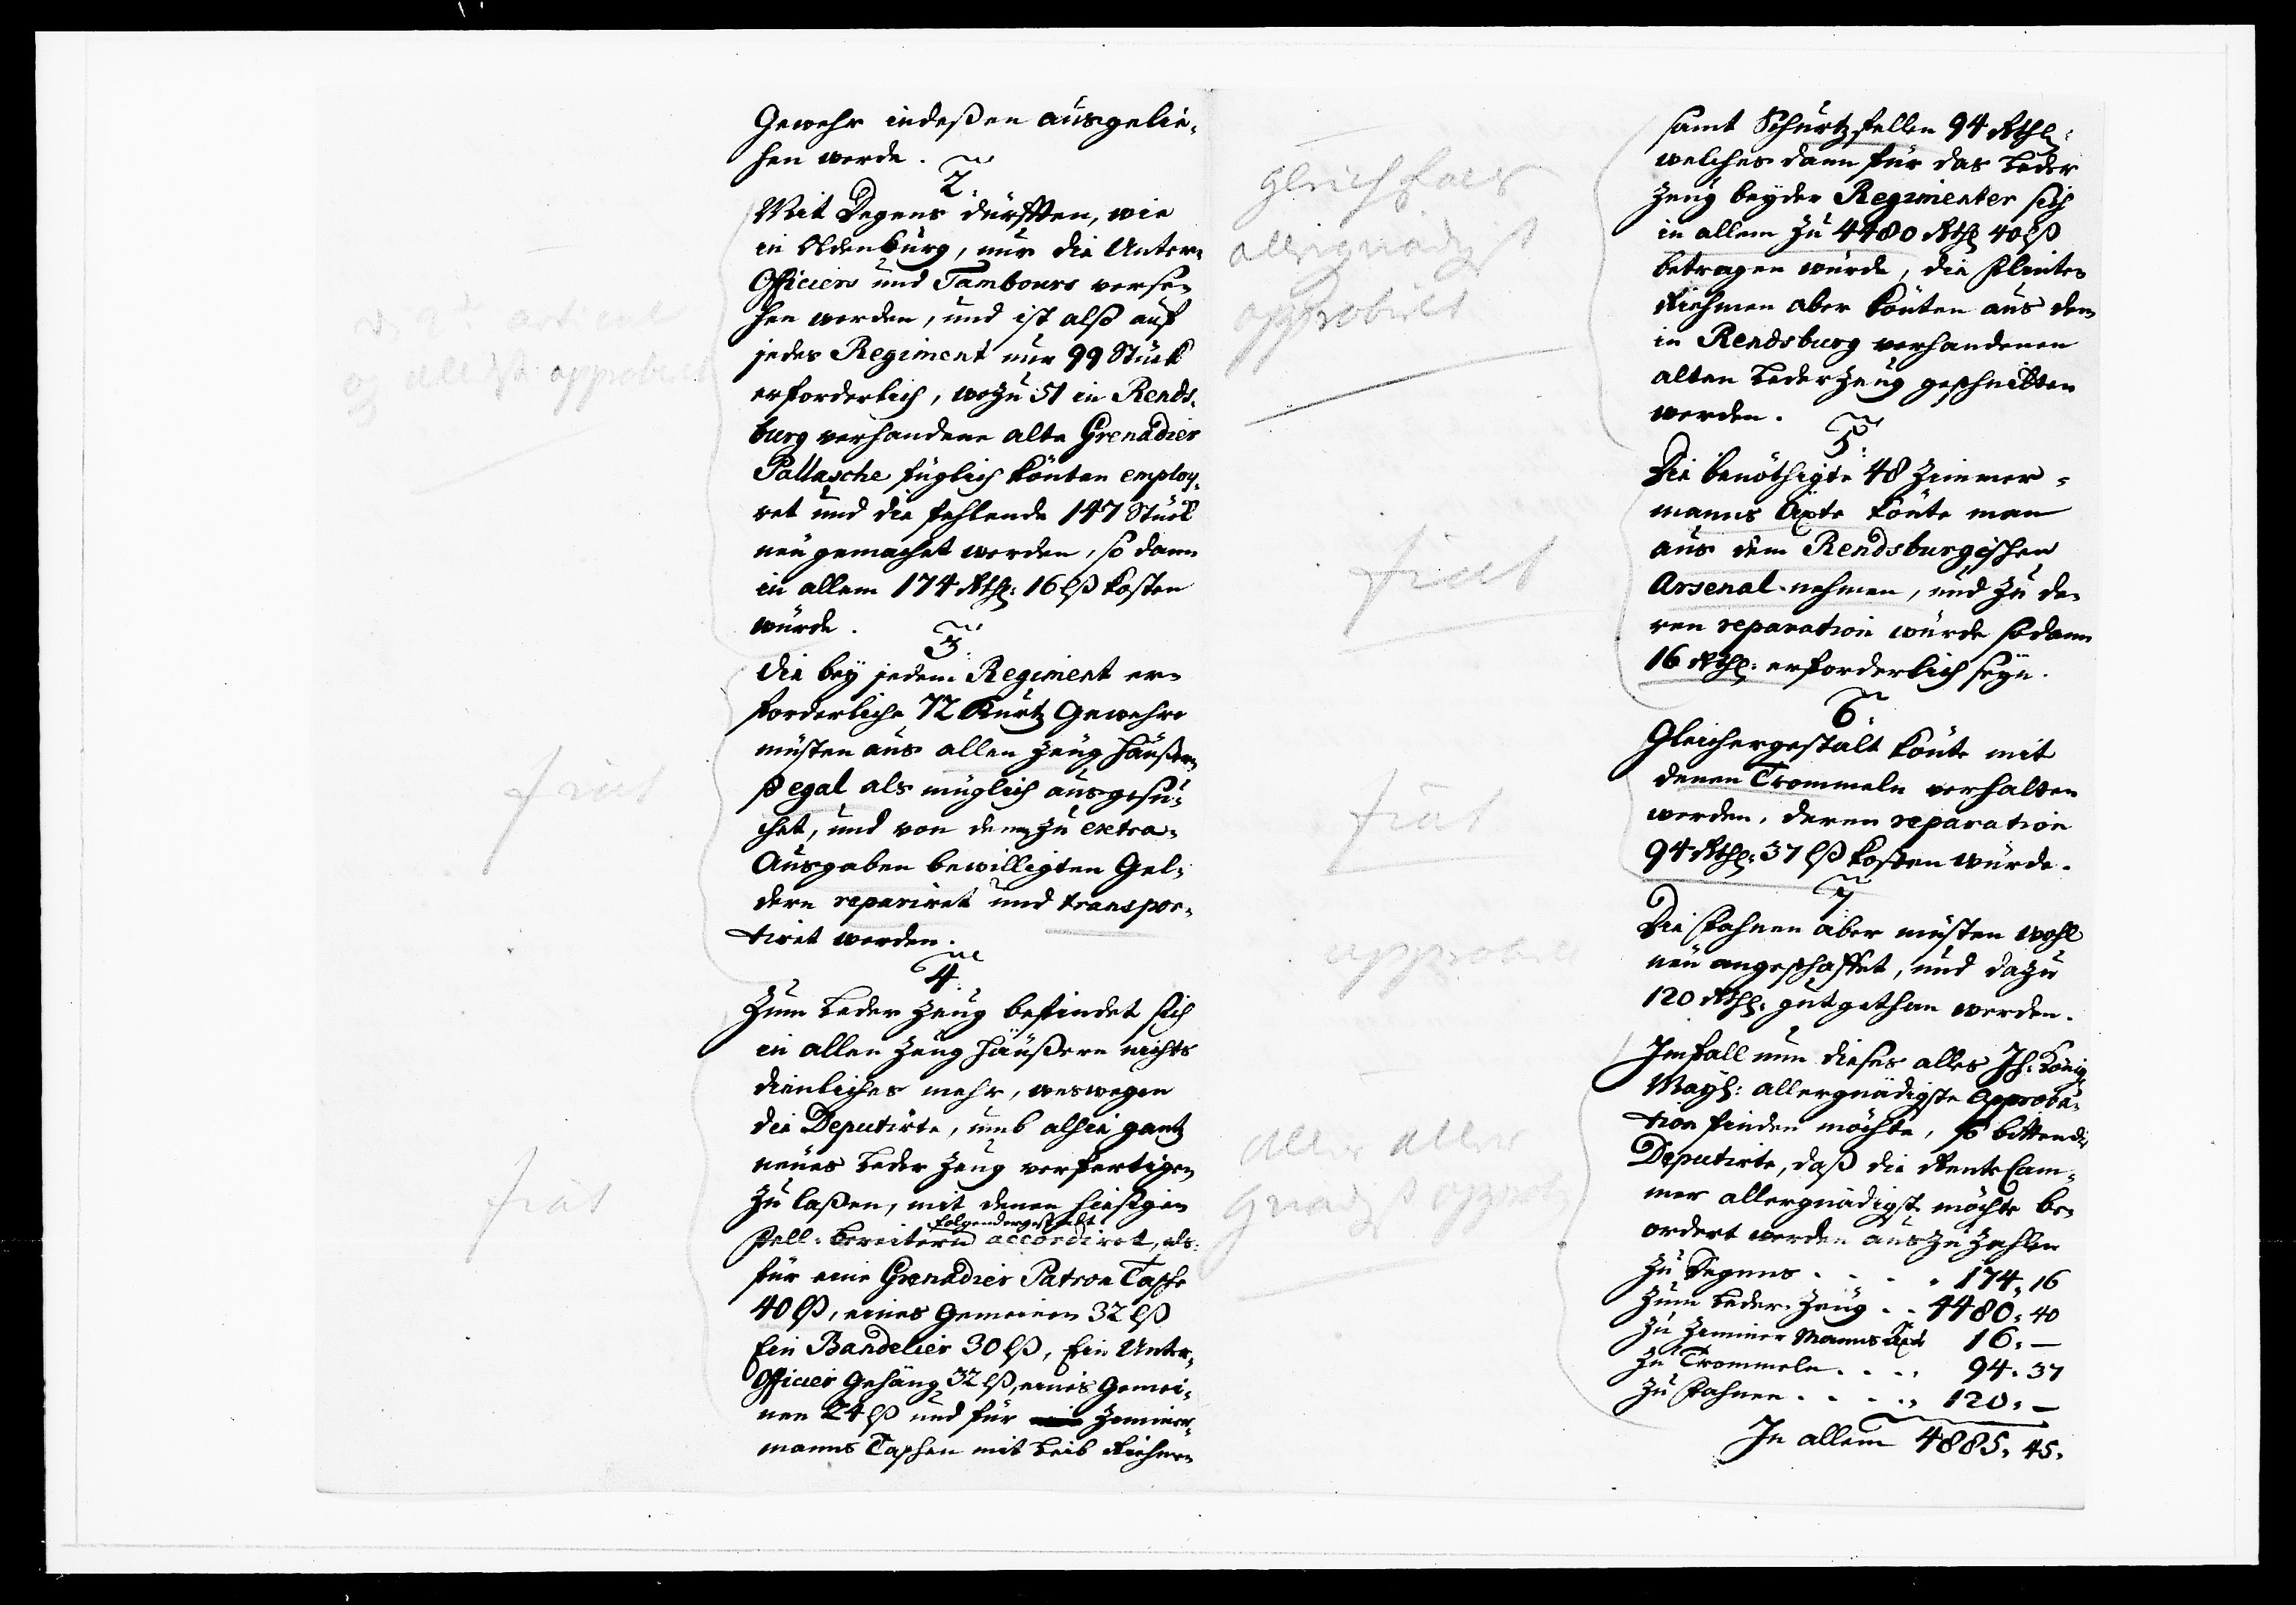 Gewehr indeßen ausgelie-
hen werde.
2.
Mit Degens dürfften, wie
in Oldenburg, nur die Unter-
Officiers und Tambours verse-
hen werden, und ist also auf
jedes Regiment nur 99 Stück
erforderlich, wozu 51 in Rends-
burg verhandene alte Grenadier
Pallasche füglich könten employ-
ret und die fehlende 147 Stück
neu gemachet werden, so dann
in allem 174 Rthl: 16 lß kosten
würde.
3.
Die bey jedem Regiment er-
forderliche 72 Kurtz Gewehre
müsten aus allen Zeug Häußern
so egal als müglich ausgesu-
chet, und von denen zu extra-
Ausgaben bewilligten Gel-
dern repariret und transpor-
tiret werden.
4.
Zum Leder Zeug befindet sich
in allen Zeug Häußern nichts
dienliches mehr, weswegen
die Deputirte, umb alhie gantz
neues Leder Zeug verfertigen
zu laßen, mit denen hiesigen
folgendergestalt
Fell-Bereitern accordiret, als:
für eine Grenadier Patron Tasche
40 lß, eines Gemeinen 32 lß
Ein Bandelier 30 lß, Ein Unter-
Officier Gehäng 32 lß, eines Gemei-
nen 24 lß und für Zimmer-
manns Taschen mit Leib Riehmen
approbirt
fiat
fiat
samt Schurtzfellen 94 Rthl:
welches dann für das Leder
Zeug beyder Regimenter sich
in allem zu 4480 Rthl 40 lß
betragen würde, die Flinten
Riehmen aber könten aus dem
in Rendsburg verhandenen
alten Leder Zeug geschnitten
werden.
5.
Die benöthigte 48 Zimmer-
manns Äxte könte man
aus dem Rendsburgischen
Arsenal nehmen, und zu de-
ren reparation würde sodann
16 Rthl: erforderlich seyn.
6.
Gleichergestalt könte mit
denen Trommeln verhalten
werden, deren reparation
94 Rthl: 37 lß kosten würde.
7.
Die Fahnen aber müsten wohl
neu angeschaffet, und dazu
120 Rthl: gutgethan werden.
Imfall nun dieses alles Ih: Königl
Mayt: allergnädigste Approba-
tion finden möchte, so bitten die
Deputirte, daß die Rente Cam-
mer allergnädigst möchte be-
ordert werden auszuzahlen
Zu Degens . . . . 174, 16
Zum Leder-Zeug . . 4480, 40
Zu Zimmer Manns Äxt 16, —
Zu Trommeln . . . . 94, 37
Zu Fahnen . . . . 120, —
In allem 4885, 45.
gleichfals
allergnädigst
approbirt
fiat
fiat
approbirt
aller
gnädigst approb